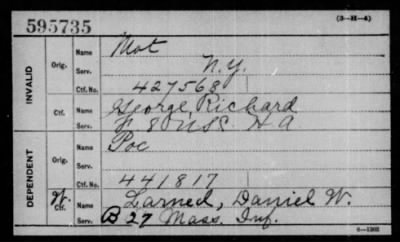 595735
(3-H-4)
INVALID
Orig.
Name Mot
Serv. N.Y.
Ctf. No. 427568
Ctf.
Name George, Richard
Serv. F 8 U.S. H.A
DEPENDENT
Orig.
Name Poc
Serv.
Ctf. No. 441817
W. Ctf.
Name Larned, Daniel W.
Serv. B 27 Mass. Inf.